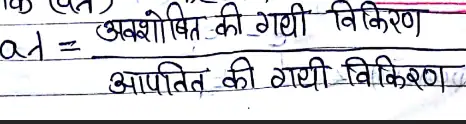 aλ = अवशोषित की गयी विकिरण
आपतित की गयी विकिरण